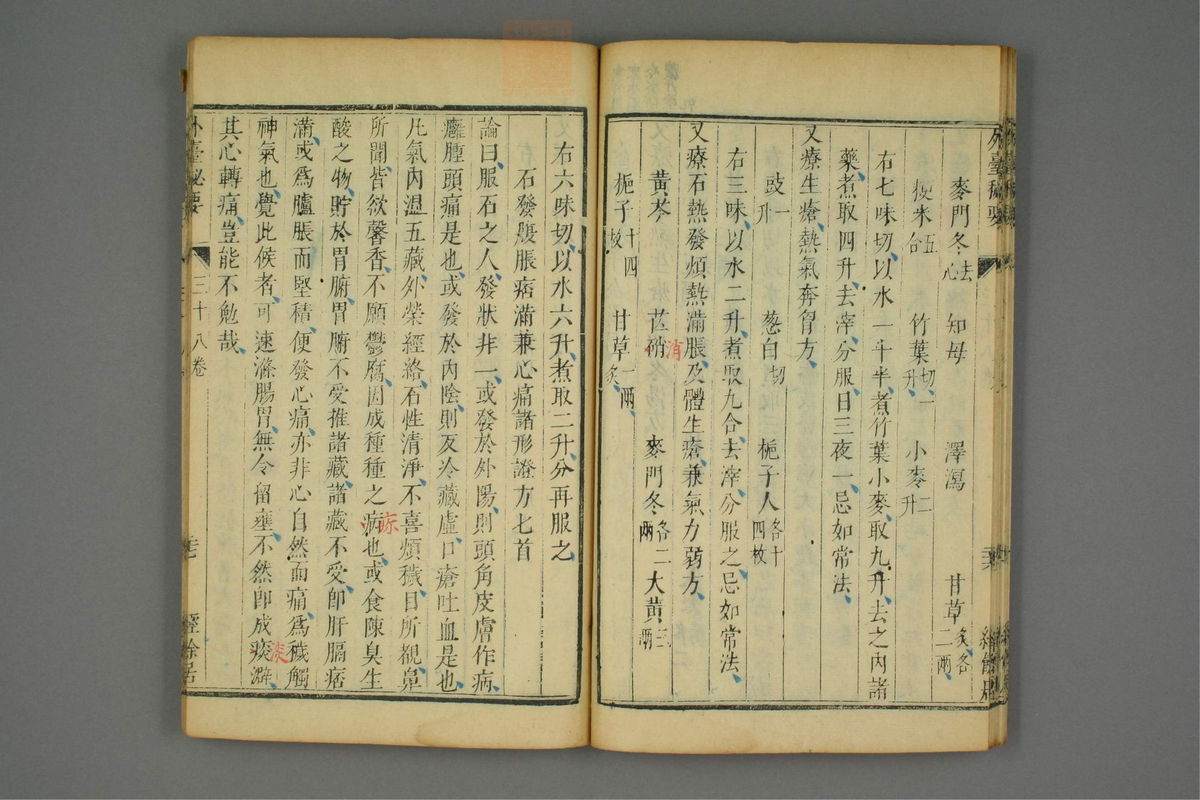 外臺秘要
麥門冬去心 知母 澤瀉 甘草炙各二兩
粳米五合 竹葉切一升 小麥二升
右七味切以水一斗半煮竹葉小麥取九升去之內諸
藥煮取四升去滓分服日三夜一忌如常法
又療生瘡熱氣奔胷方
豉一升 葱白切 梔子人各十四枚
右三味以水二升煮取九合去滓分服之忌如常法
又療石熱發煩熱滿脹及體生瘡兼氣力弱方
黃芩 芒硝 麥門冬各二兩 大黃三兩
消
梔子十四枚 甘草一兩炙
右六味切以水六升煮取二升分再服之
石發腹脹痞滿兼心痛諸形證方七首
論曰服石之人發狀非一或發於外陽則頭角皮膚作病
癰腫頭痛是也或發於內陰則及冷藏虛口瘡吐血是也
凡氣內溫五藏外榮經絡石性清淨不喜煩穢目所視鼻
所聞皆欲馨香不願鬱腐因成種種之病也或食陳臭生
疢
酸之物貯於胃腑胃腑不受推諸藏諸藏不受卽肝膈痞
滿或爲臚脹而堅積便發心痛亦非心自然而痛爲穢觸
神氣也覺此候者可速滌腸胃無令留壅不然卽成痰澼
其心轉痛豈能不勉哉
外臺秘要 三十八卷 經餘居